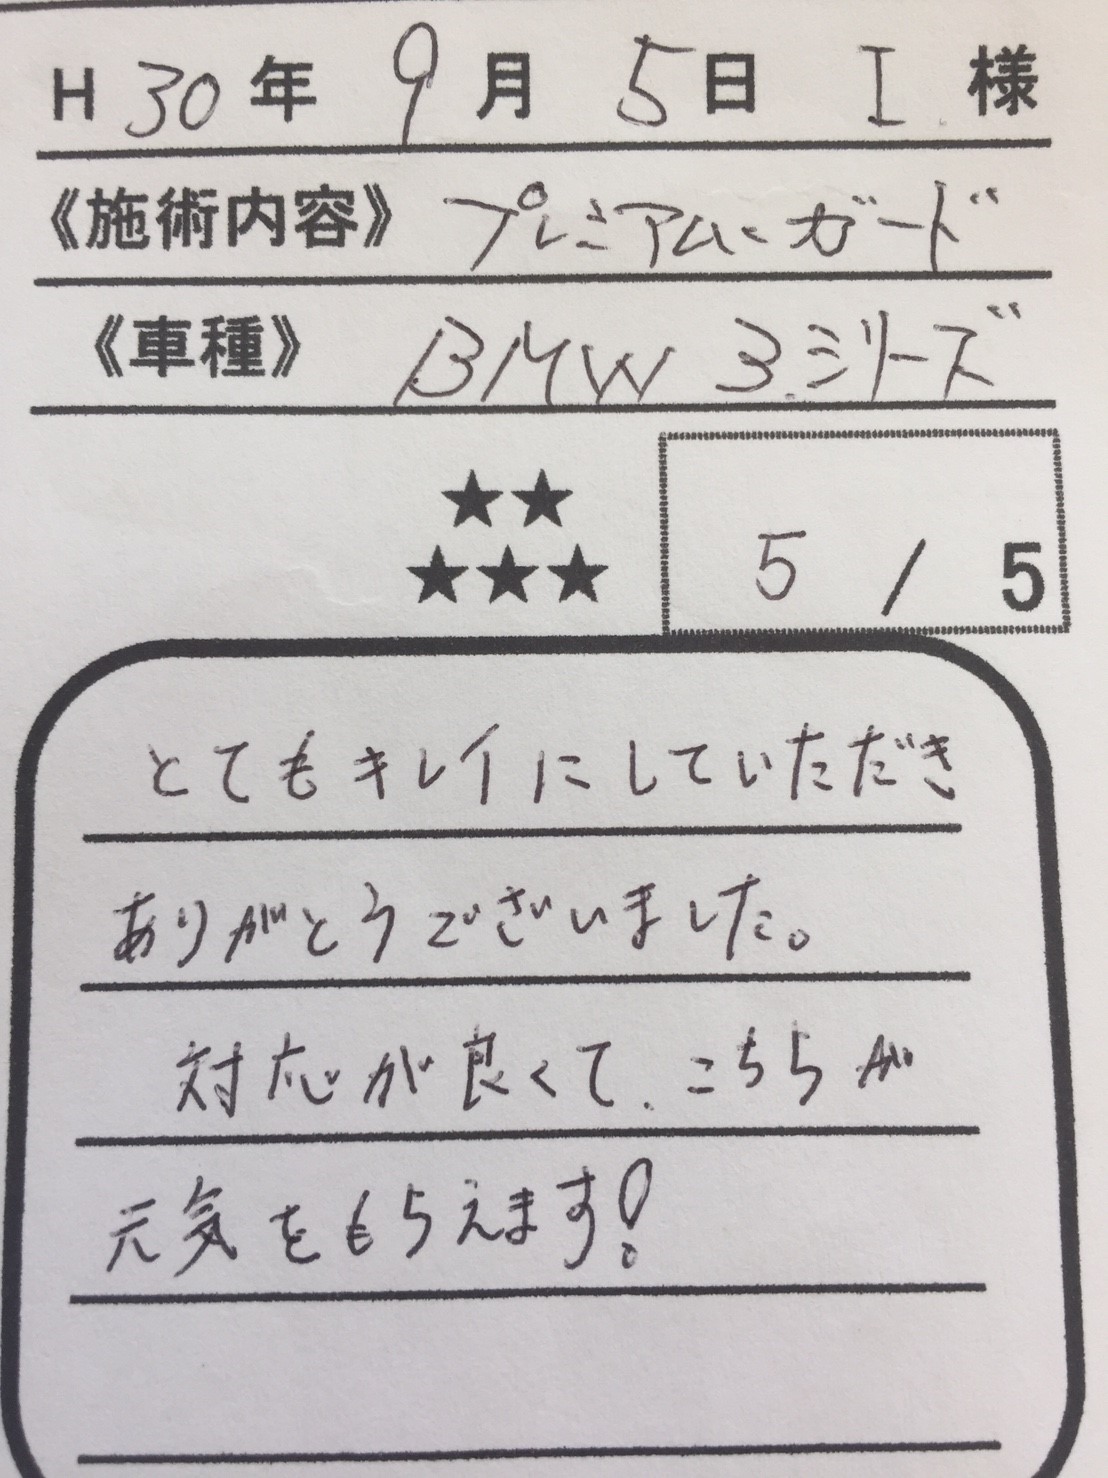 H 30年 9月 5日 I.様
《施術内容》 プレミアムガード
《車種》 BMW 3シリーズ
★★
★★★ 5 / 5
とてもキレイにしていただき
ありがとうございました。
対応が良くて、こちらが
元気をもらえます!